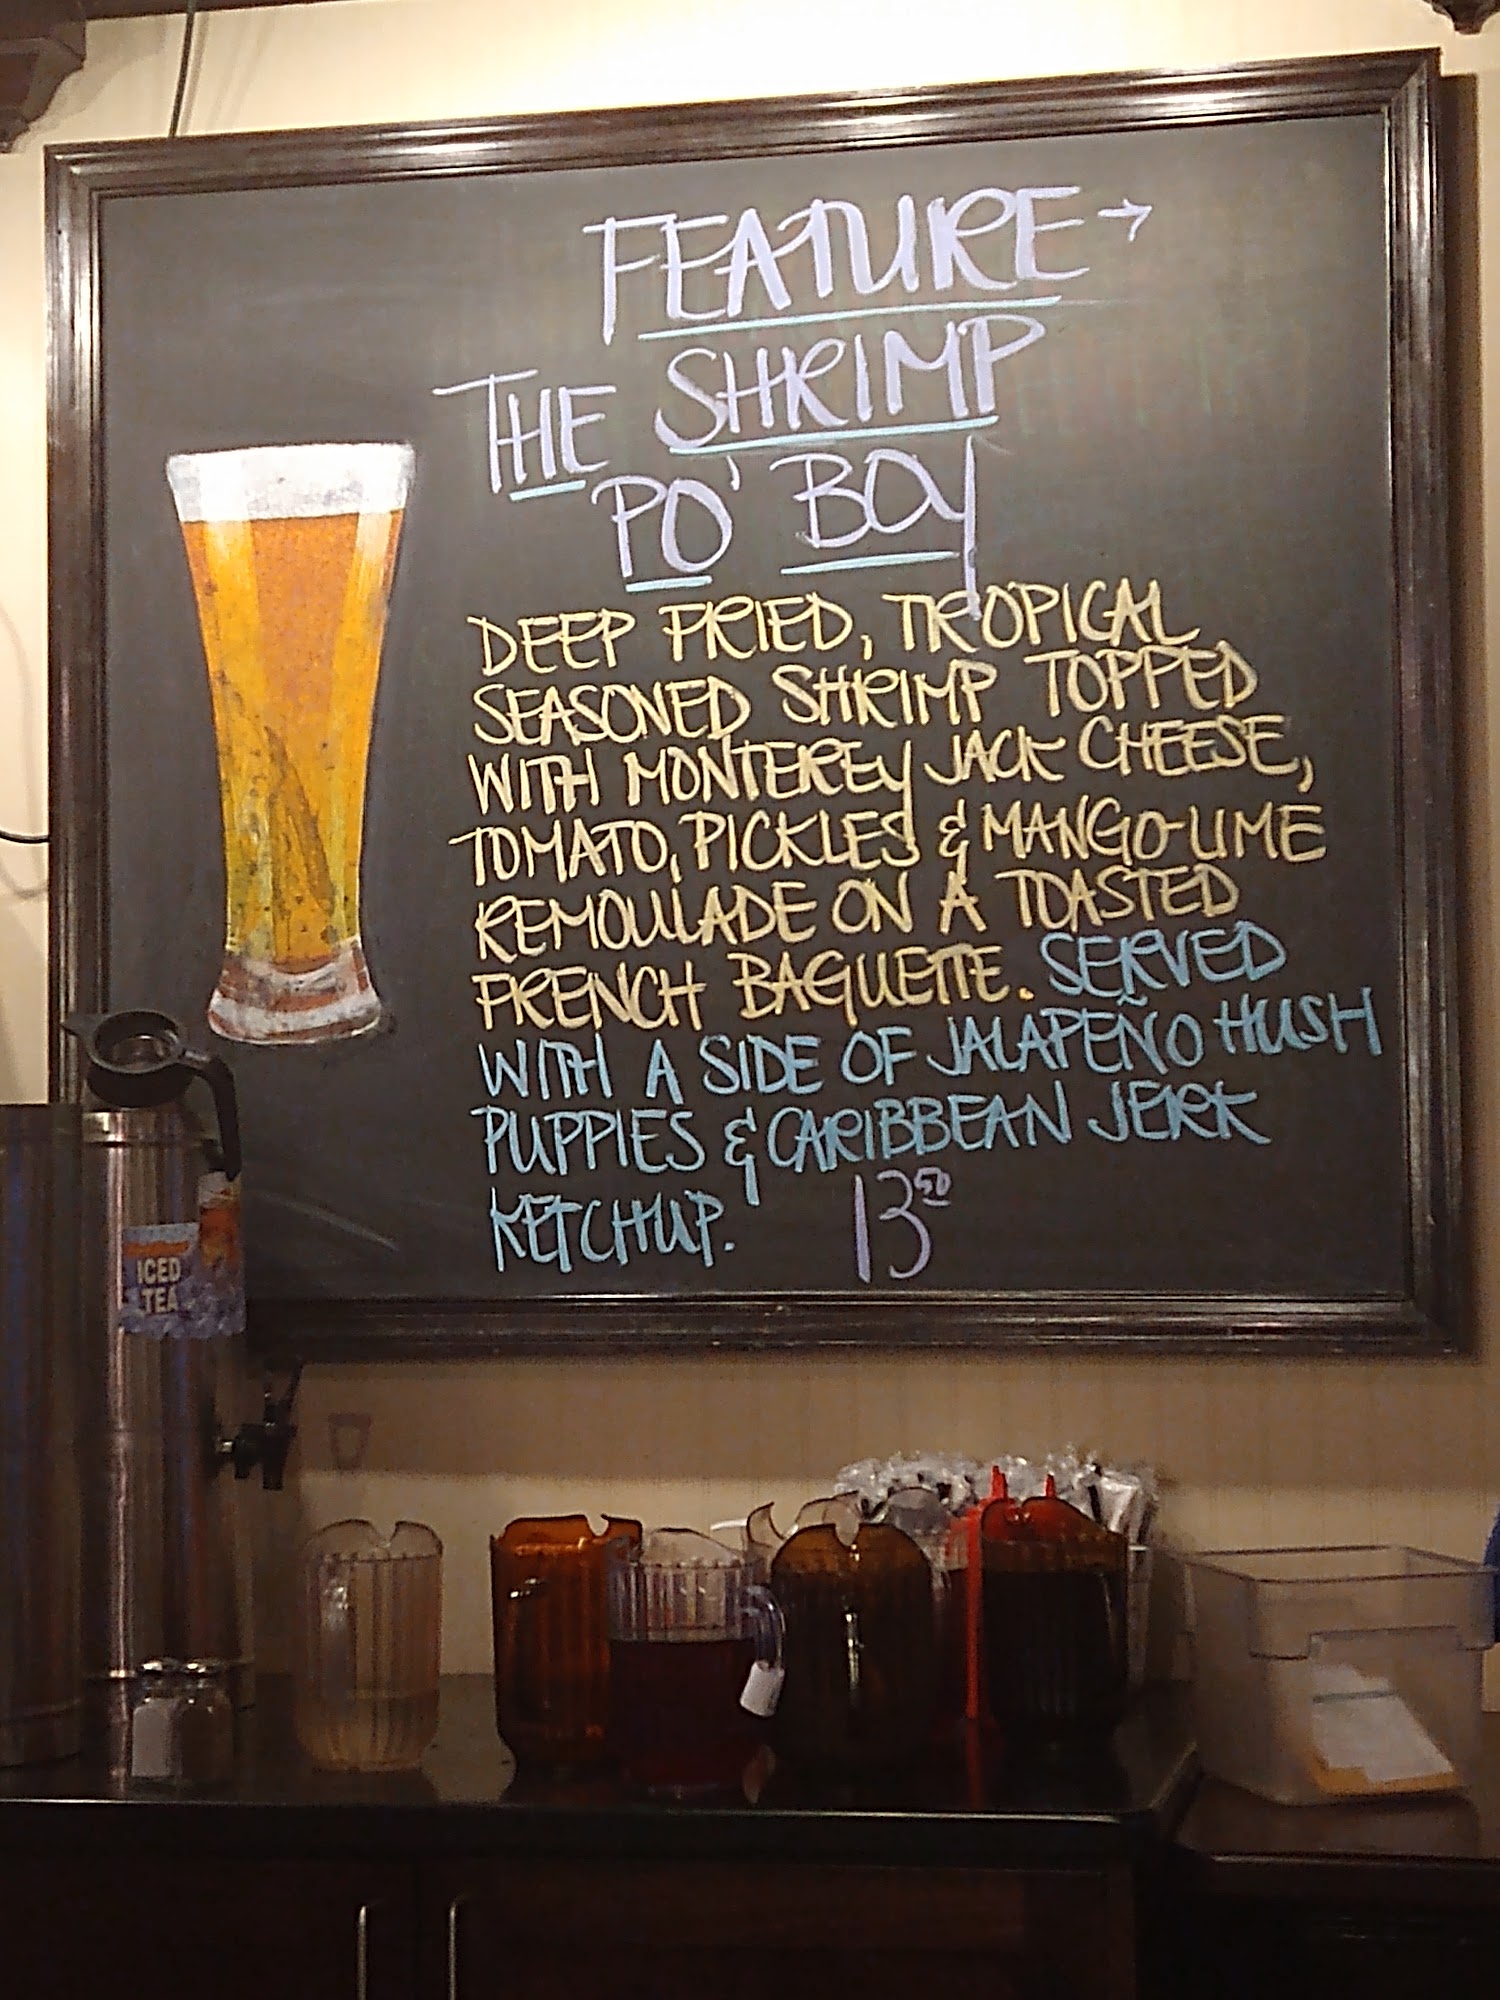 FEATURE →
THE SHRIMP
PO' BOY
DEEP FRIED, TROPICAL
SEASONED SHRIMP TOPPED
WITH MONTEREY JACK CHEESE,
TOMATO, PICKLES & MANGO-LIME
REMOULADE ON A TOASTED
FRENCH BAGUETTE. SERVED
WITH A SIDE OF JALAPEÑO HUSH
PUPPIES & CARIBBEAN JERK
KETCHUP. 13 50
ICED
TEA